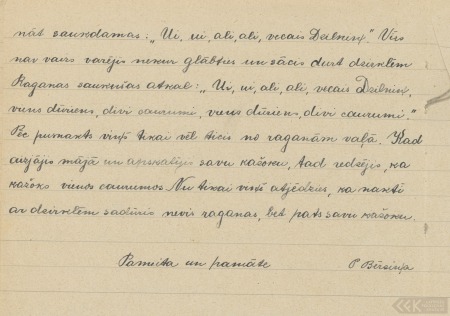 nāt saukdamas: „Ui, ui, ali, ali, vecais Dzilniņ." Viņš
nav vairs varējis nekur glābties un sācis durt dzirklēm
Raganas saukušas atkal: „Ui, ui, ali, ali, vecais Dzilniņ,
viens dūriens, divi caurumi, viens dūriens, divi caurumi."
Pēc pusnakts viņš tikai vēl ticis no raganām vaļā. Kad
aizgājis mājā un apskatījis savu kažoku, tad redzējis, ka
kažoks vienos caurumos. Nu tikai viņš atjēdzies, ka naktī
ar dzirklēm sadūris nevis raganas, bet pats savu kažoku.
Pameita un pamāte P. Bērziņa